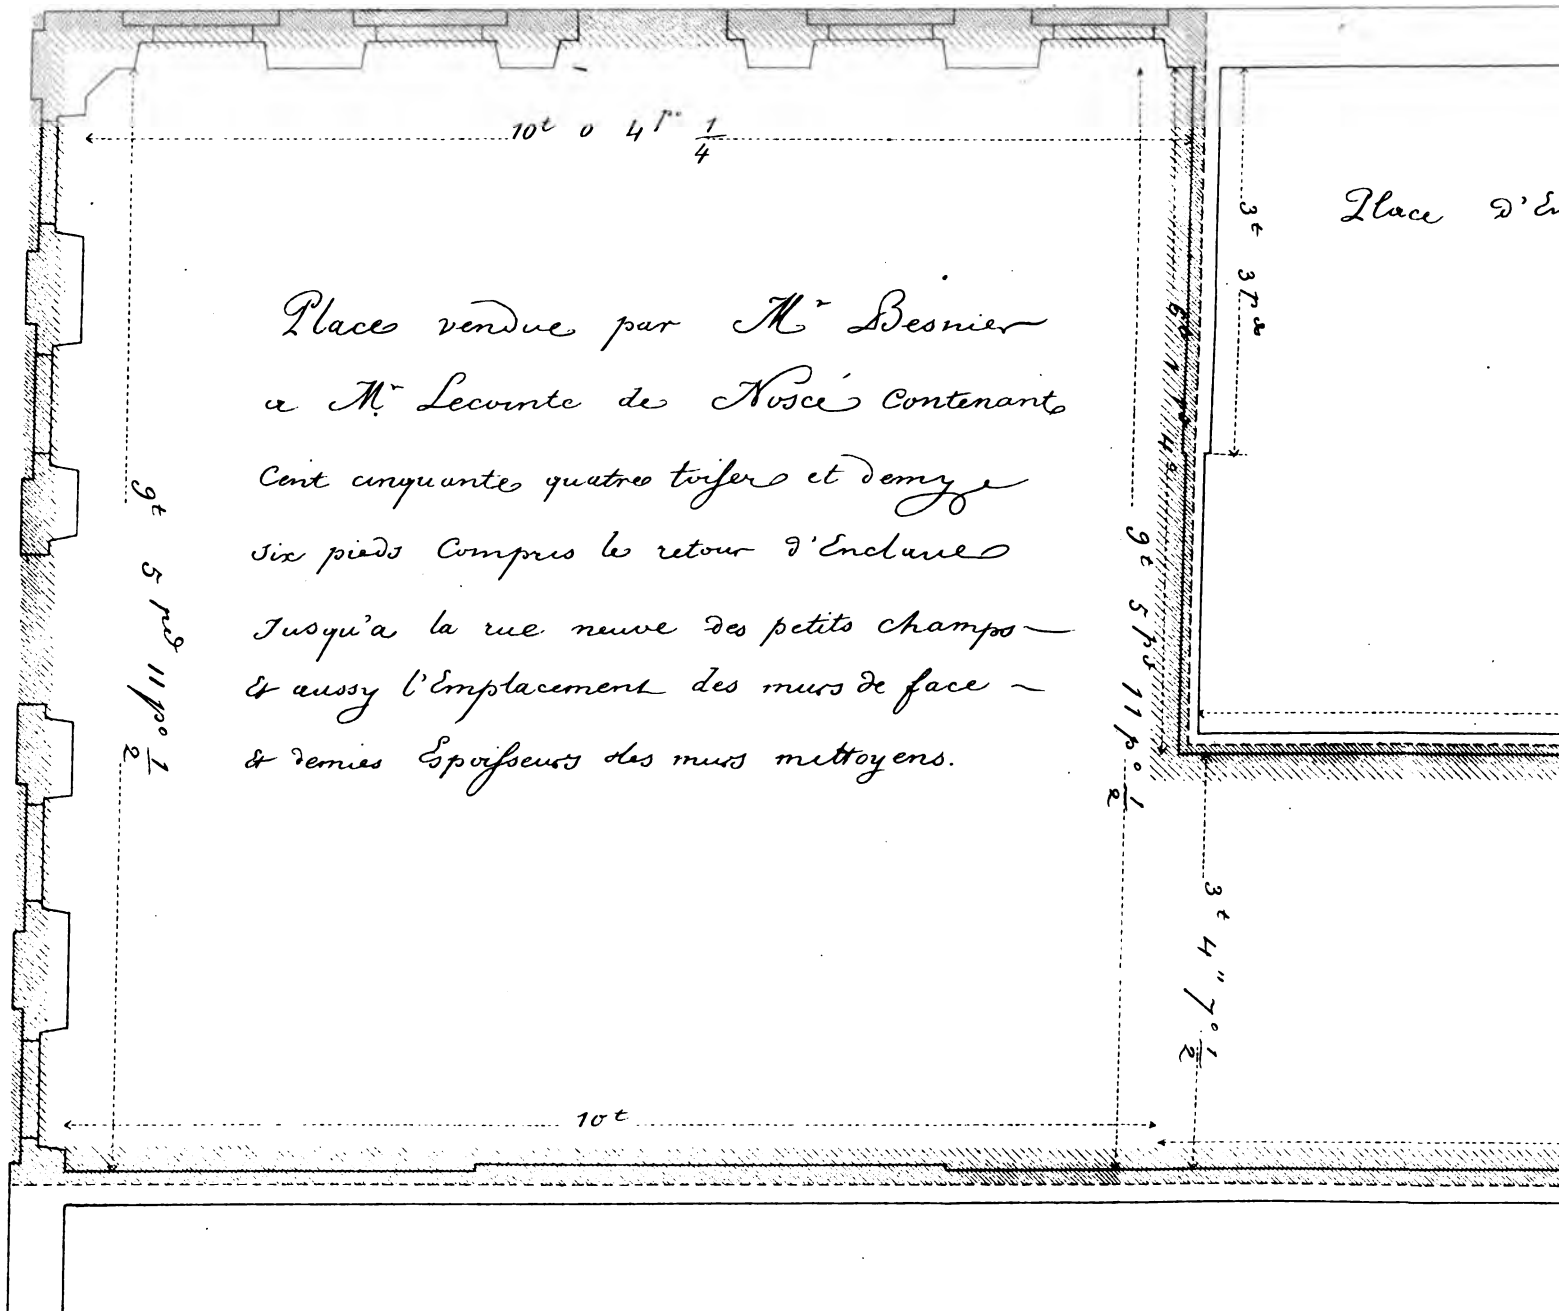 10t 0 4po 1/4
Place D'En
3t 3ps
Place vendue par Mr Besnier
a Mr Lecointe de Noscé Contenant
Cent cinquante quatre toises et demye
six pieds Compris le retour d'Enclave
Jusqu'a la rue neuve des petits champs
& aussy l'Emplacement des murs de face
& demies Espoisseurs des murs mittoyens.
6t 1ps 4o
9t 5pds 11po 1/2
9t 5ps 11po 1/2
3t 4" 7o 1/2
10t